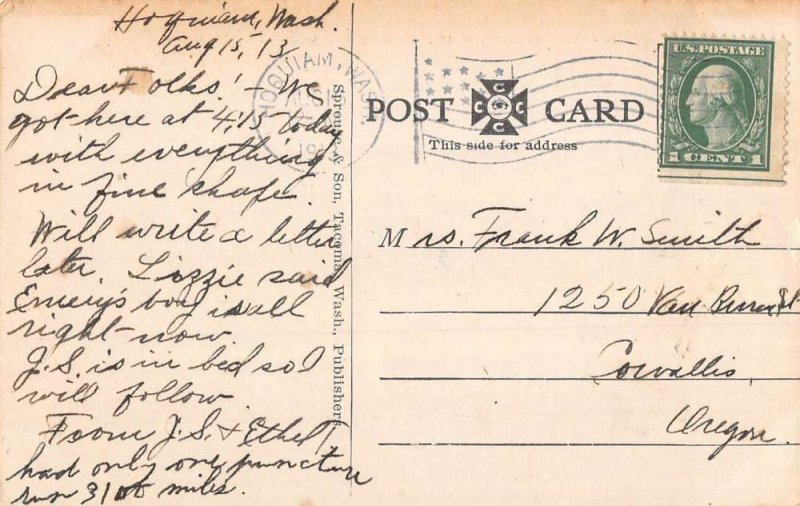 Hoquiam, Wash.
Aug 15, 13
Dear Folks! - We
got here at 4,15 today
with everything
in fine shape.
Will write a letter
later. Lizzie said
Emery's boy is all
right now.
J.S. is in bed so I
will follow
From J.S. & Ethel
had only one puncture
run 3100 miles.
HOQUIAM, WASH.
Sprouse & Son, Tacoma, Wash., Publishers
POST CARD
C C C C
This side for address
U.S. POSTAGE
1 CENT 1
Mrs. Frank W. Smith
1250 Van Buren St
Corvallis,
Oregon.